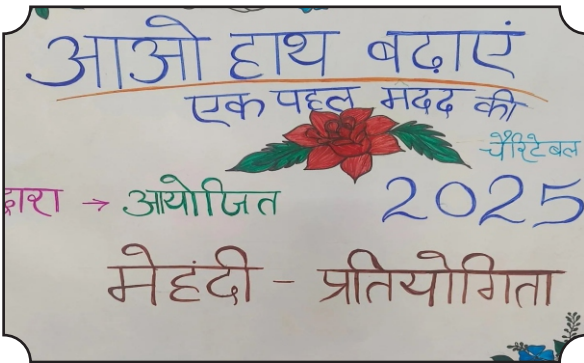 आओ हाथ बढ़ाएं
एक पहल मदद की
चैरिटेबल
द्वारा → आयोजित 2025
मेहंदी - प्रतियोगिता